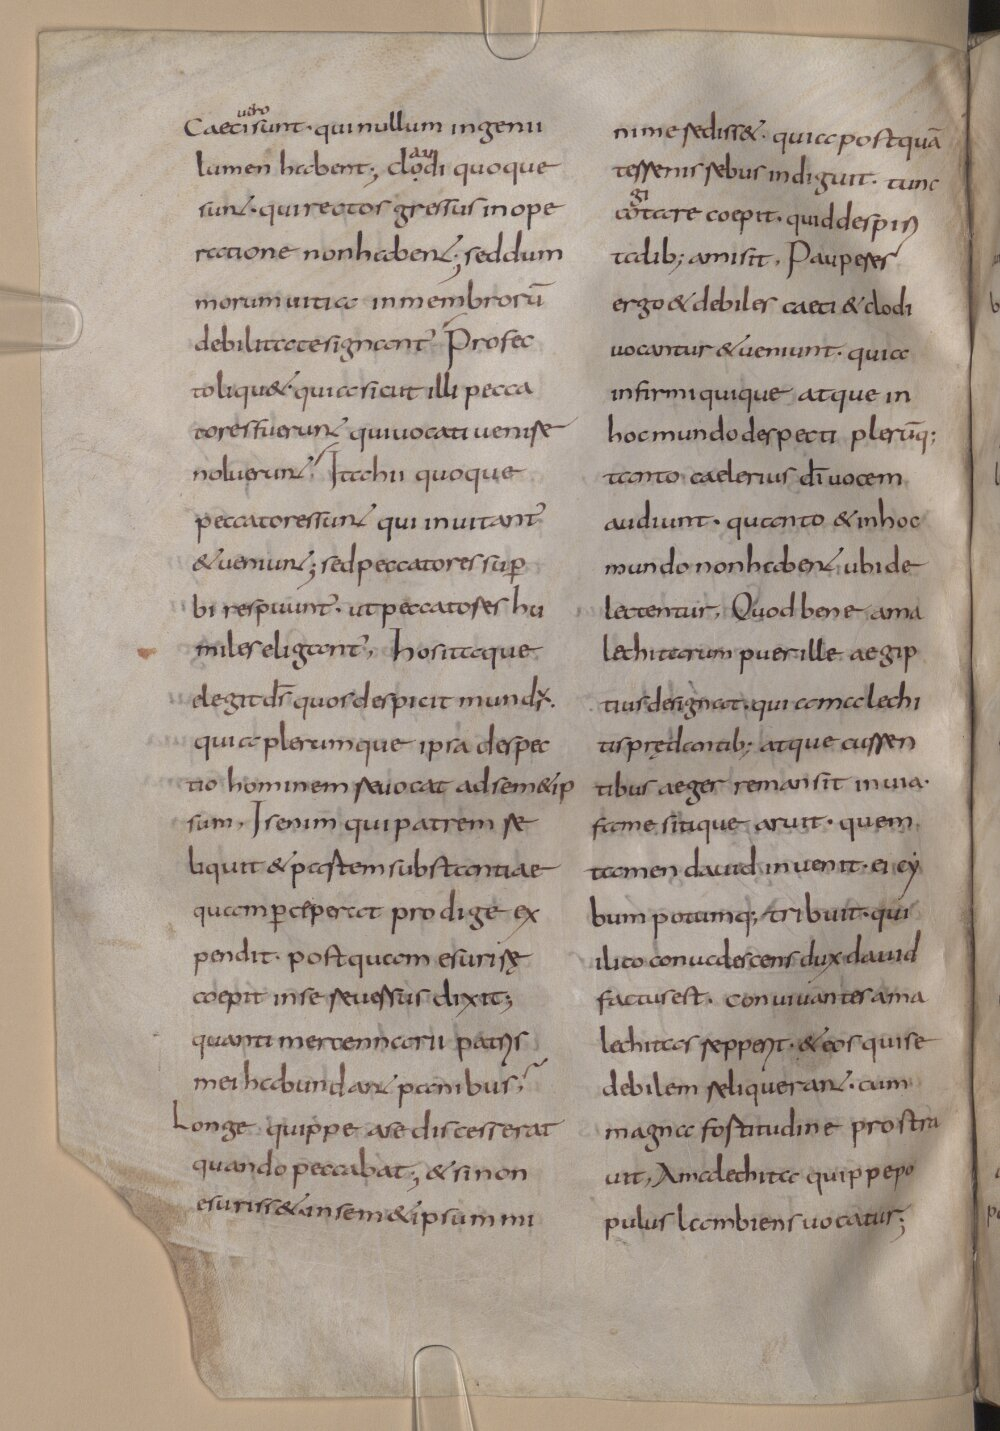 Caeci uero sunt · qui nullum ingenii
lumen habent; clodi au quoque
sunt · qui rectos gressus in ope
ratione non habent; sed dum
morum uitia in membrorū
debilitate signant'. Profec
to liqu& · quia sicut illi pecca
tores fuerunt qui uocati uenire
noluerunt. Ita hii quoque
peccatores sunt qui inuitant'
& ueniunt; sed peccatores sup̲
bi respuunt' · ut peccatores hu
miles eligant', hos itaque
elegit d̄s quos despicit mundx.
quia plerumque ipsa despec
tio hominem reuocat ad sem&ip
sum, Is enim qui patrem re
liquit & partem substantiae
quam p̲ceperat prodige ex
pendit · postquam esurirę
coepit in se reuersus dixit;
quanti mercennarii patris
mei habundant panibus;
Longe quippe a se discesserat
quando peccabat; & si non
esuriss& · in sem&ipsum mi
nime rediss& · quia postquā
terrenis rebus indiguit · tunc
cotare gi coepit · quid de spiri
talib; amisit, Pauperes
ergo & debiles caeci & clodi
uocantur & ueniunt · quia
infirmi quique atque in
hoc mundo despecti plerūq;
tanto caelerius dī uocem
audiunt · quanto & in hoc
mundo non habent ubi de
lectentur, Quod bene ama
lechitarum puer ille aegip
tius designat · qui amalechi
tis prędantib; atque curren
tibus aeger remansit in uia ·
fame sitique aruit · quem
tamen dauid inuenit · ei cy
bum potumq; tribuit · qui
ilico conualescens dux dauid
factus est · conuiuantes ama
lechitas repperit · & eos qui se
debilem reliquerant · cum
magna fortitudine prostra
uit, Amalechita quippe po
pulus lambiens uocatur;